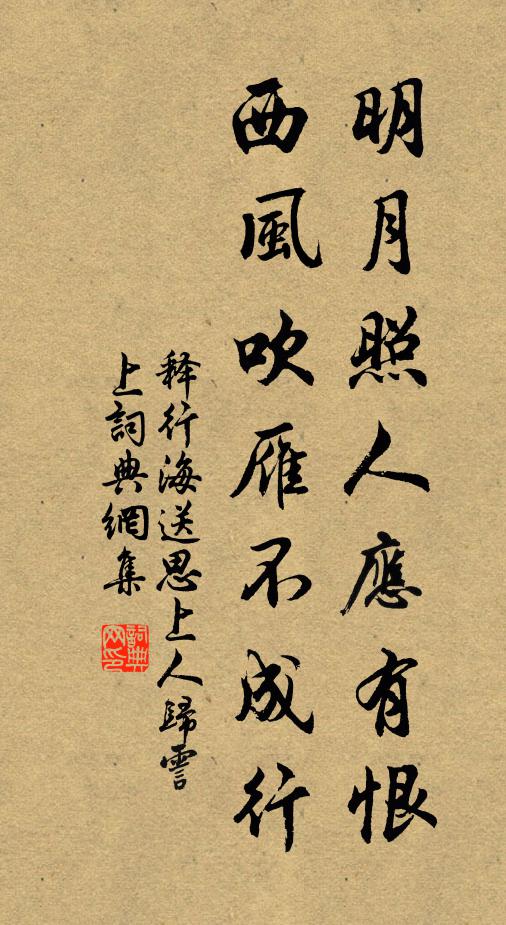 明月照人應有恨
西風吹雁不成行
释行海送思上人歸霅
上詞典網集
詞典
网印